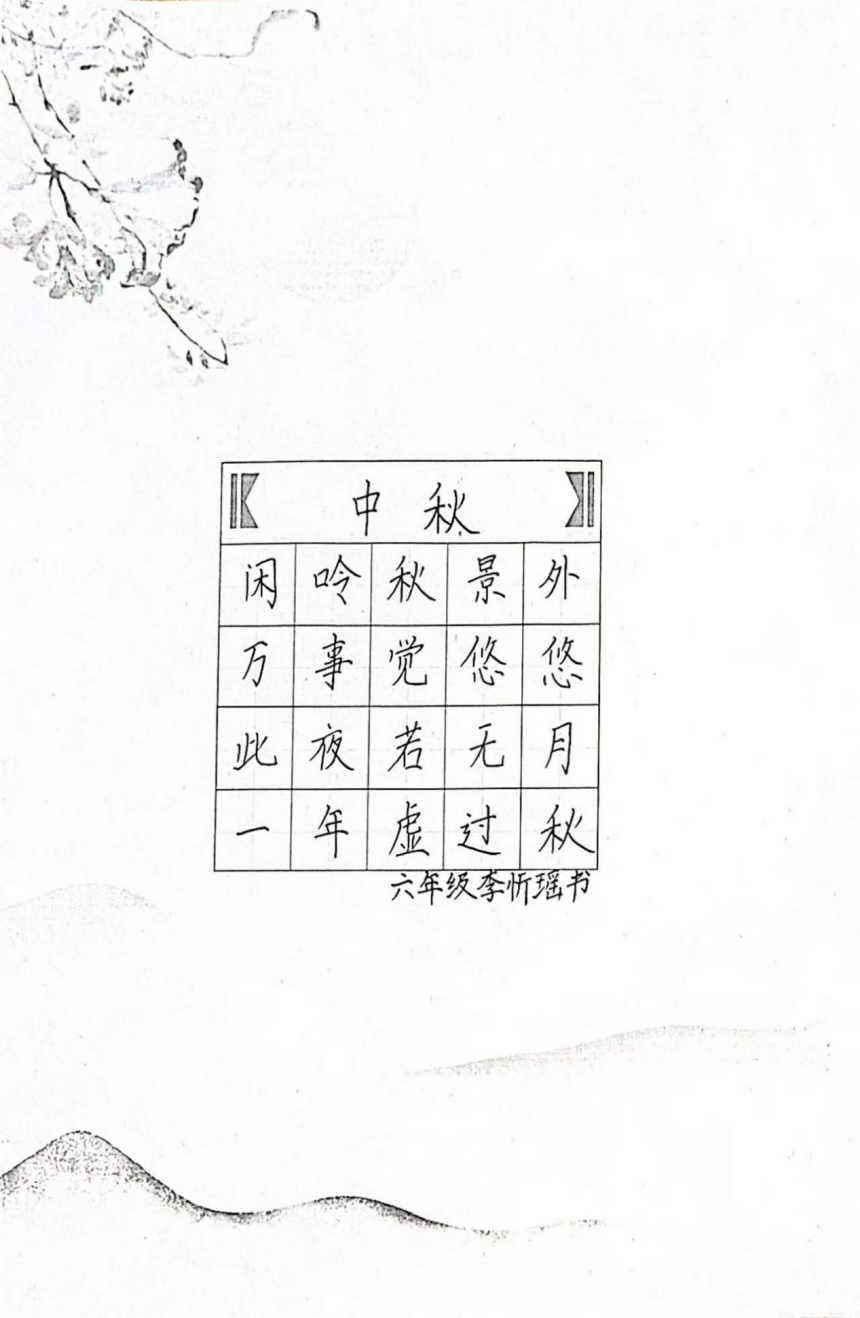 中秋
闲呤秋景外
万事觉悠悠
此夜若无月
一年虚过秋
六年级李忻瑶书